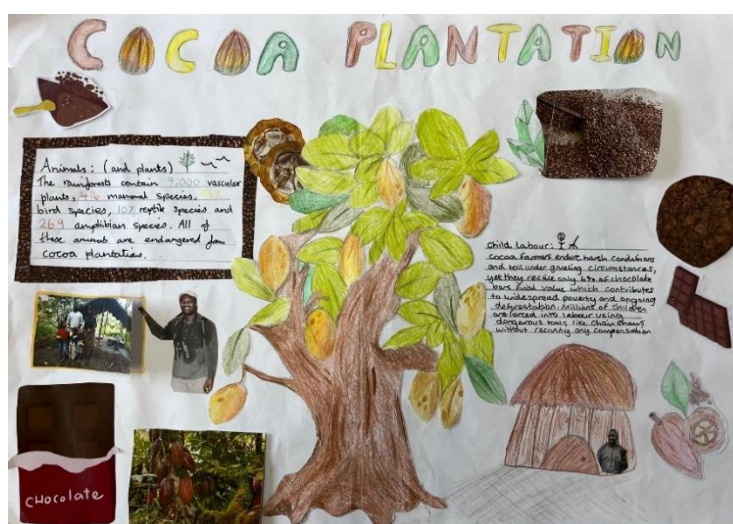 COCOA PLANTATION
Animals: (and plants)
The rainforests contain 9,000 vascular
plants, 416 mammal species,
bird species, 107 reptile species and
269 amphibian species. All of
these animals are endangered from
cocoa plantations.
Child labour:
cocoa farmers endure harsh conditions
and toil under grueling circumstances,
yet they recieve only 6% of chocolate
bars final value which contributes
to widespread poverty and ongoing
deforestation. Millions of children
are forced into labour using
dangerous tools like chainsaws
without any compensation
CHocolate